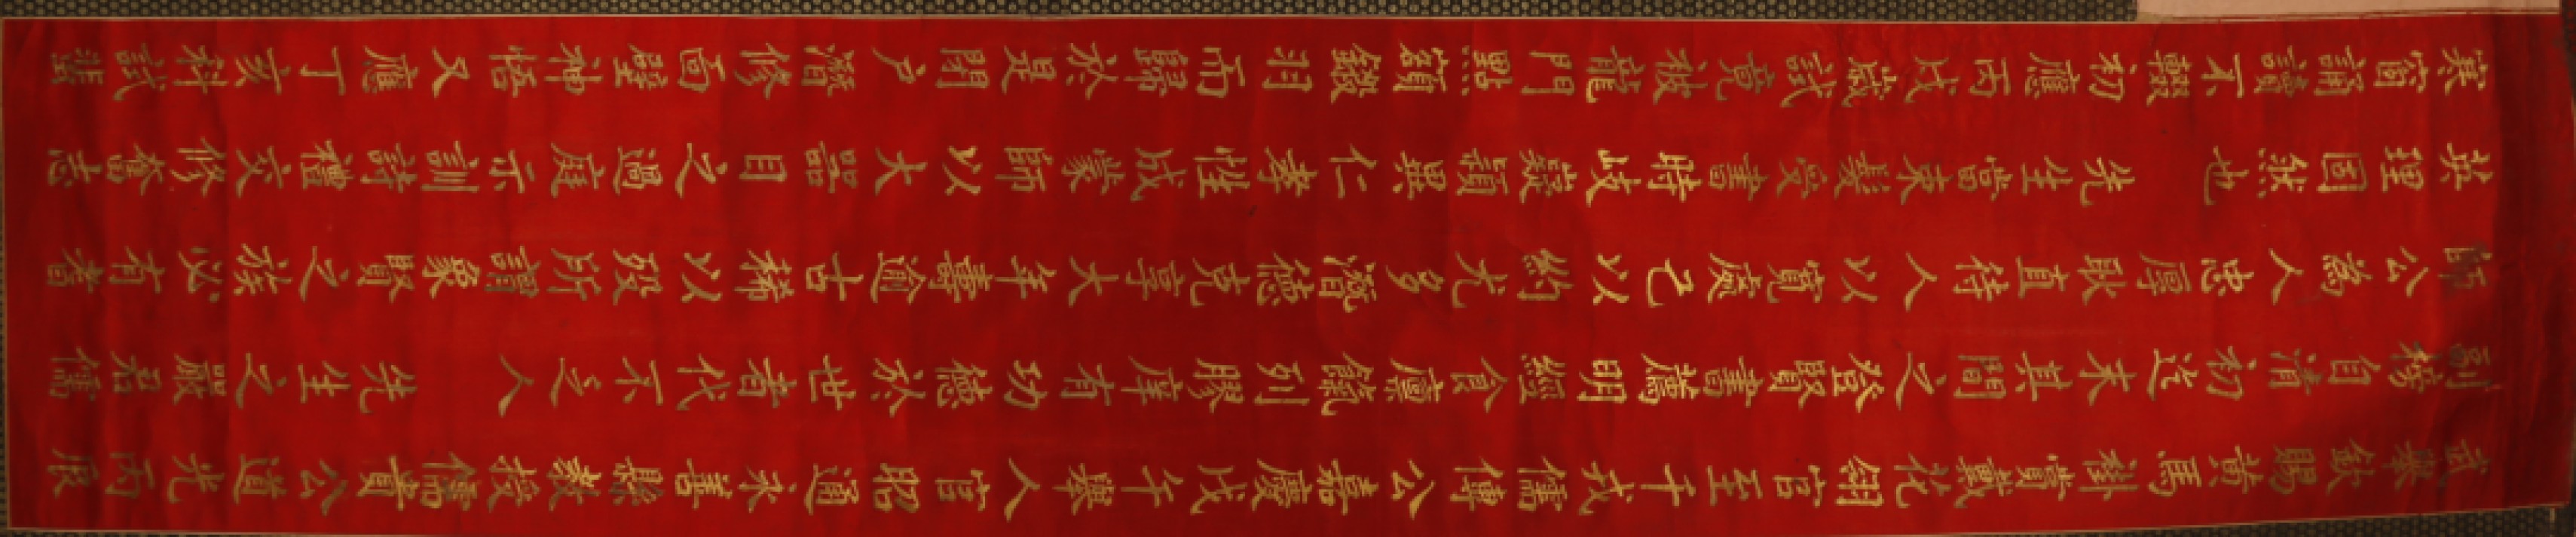 武舉欽賜黃馬褂賞戴花翎官至千戎儒傳公嘉慶戊午舉人官昭通永善縣教授儒貴公道光丙辰
副榜自清初迄末其間之登賢書薦明經食廩餼列膠庠有功德於世者代不乏人 先生之嚴君儒
公為人忠厚耿直待人以寬處己以約尤多潛德克享大年壽逾古稀以歿所謂象賢之族必有耆
英理固然也 先生當束髮受書時岐嶷穎異仁孝性成蒙師以大器目之過庭示訓詩禮交修奮志
寒窗誦讀不輟初應丙戌歲試竟被龍門點額鎩羽而歸於是閉戶潛修面壁神悟又應丁亥科試